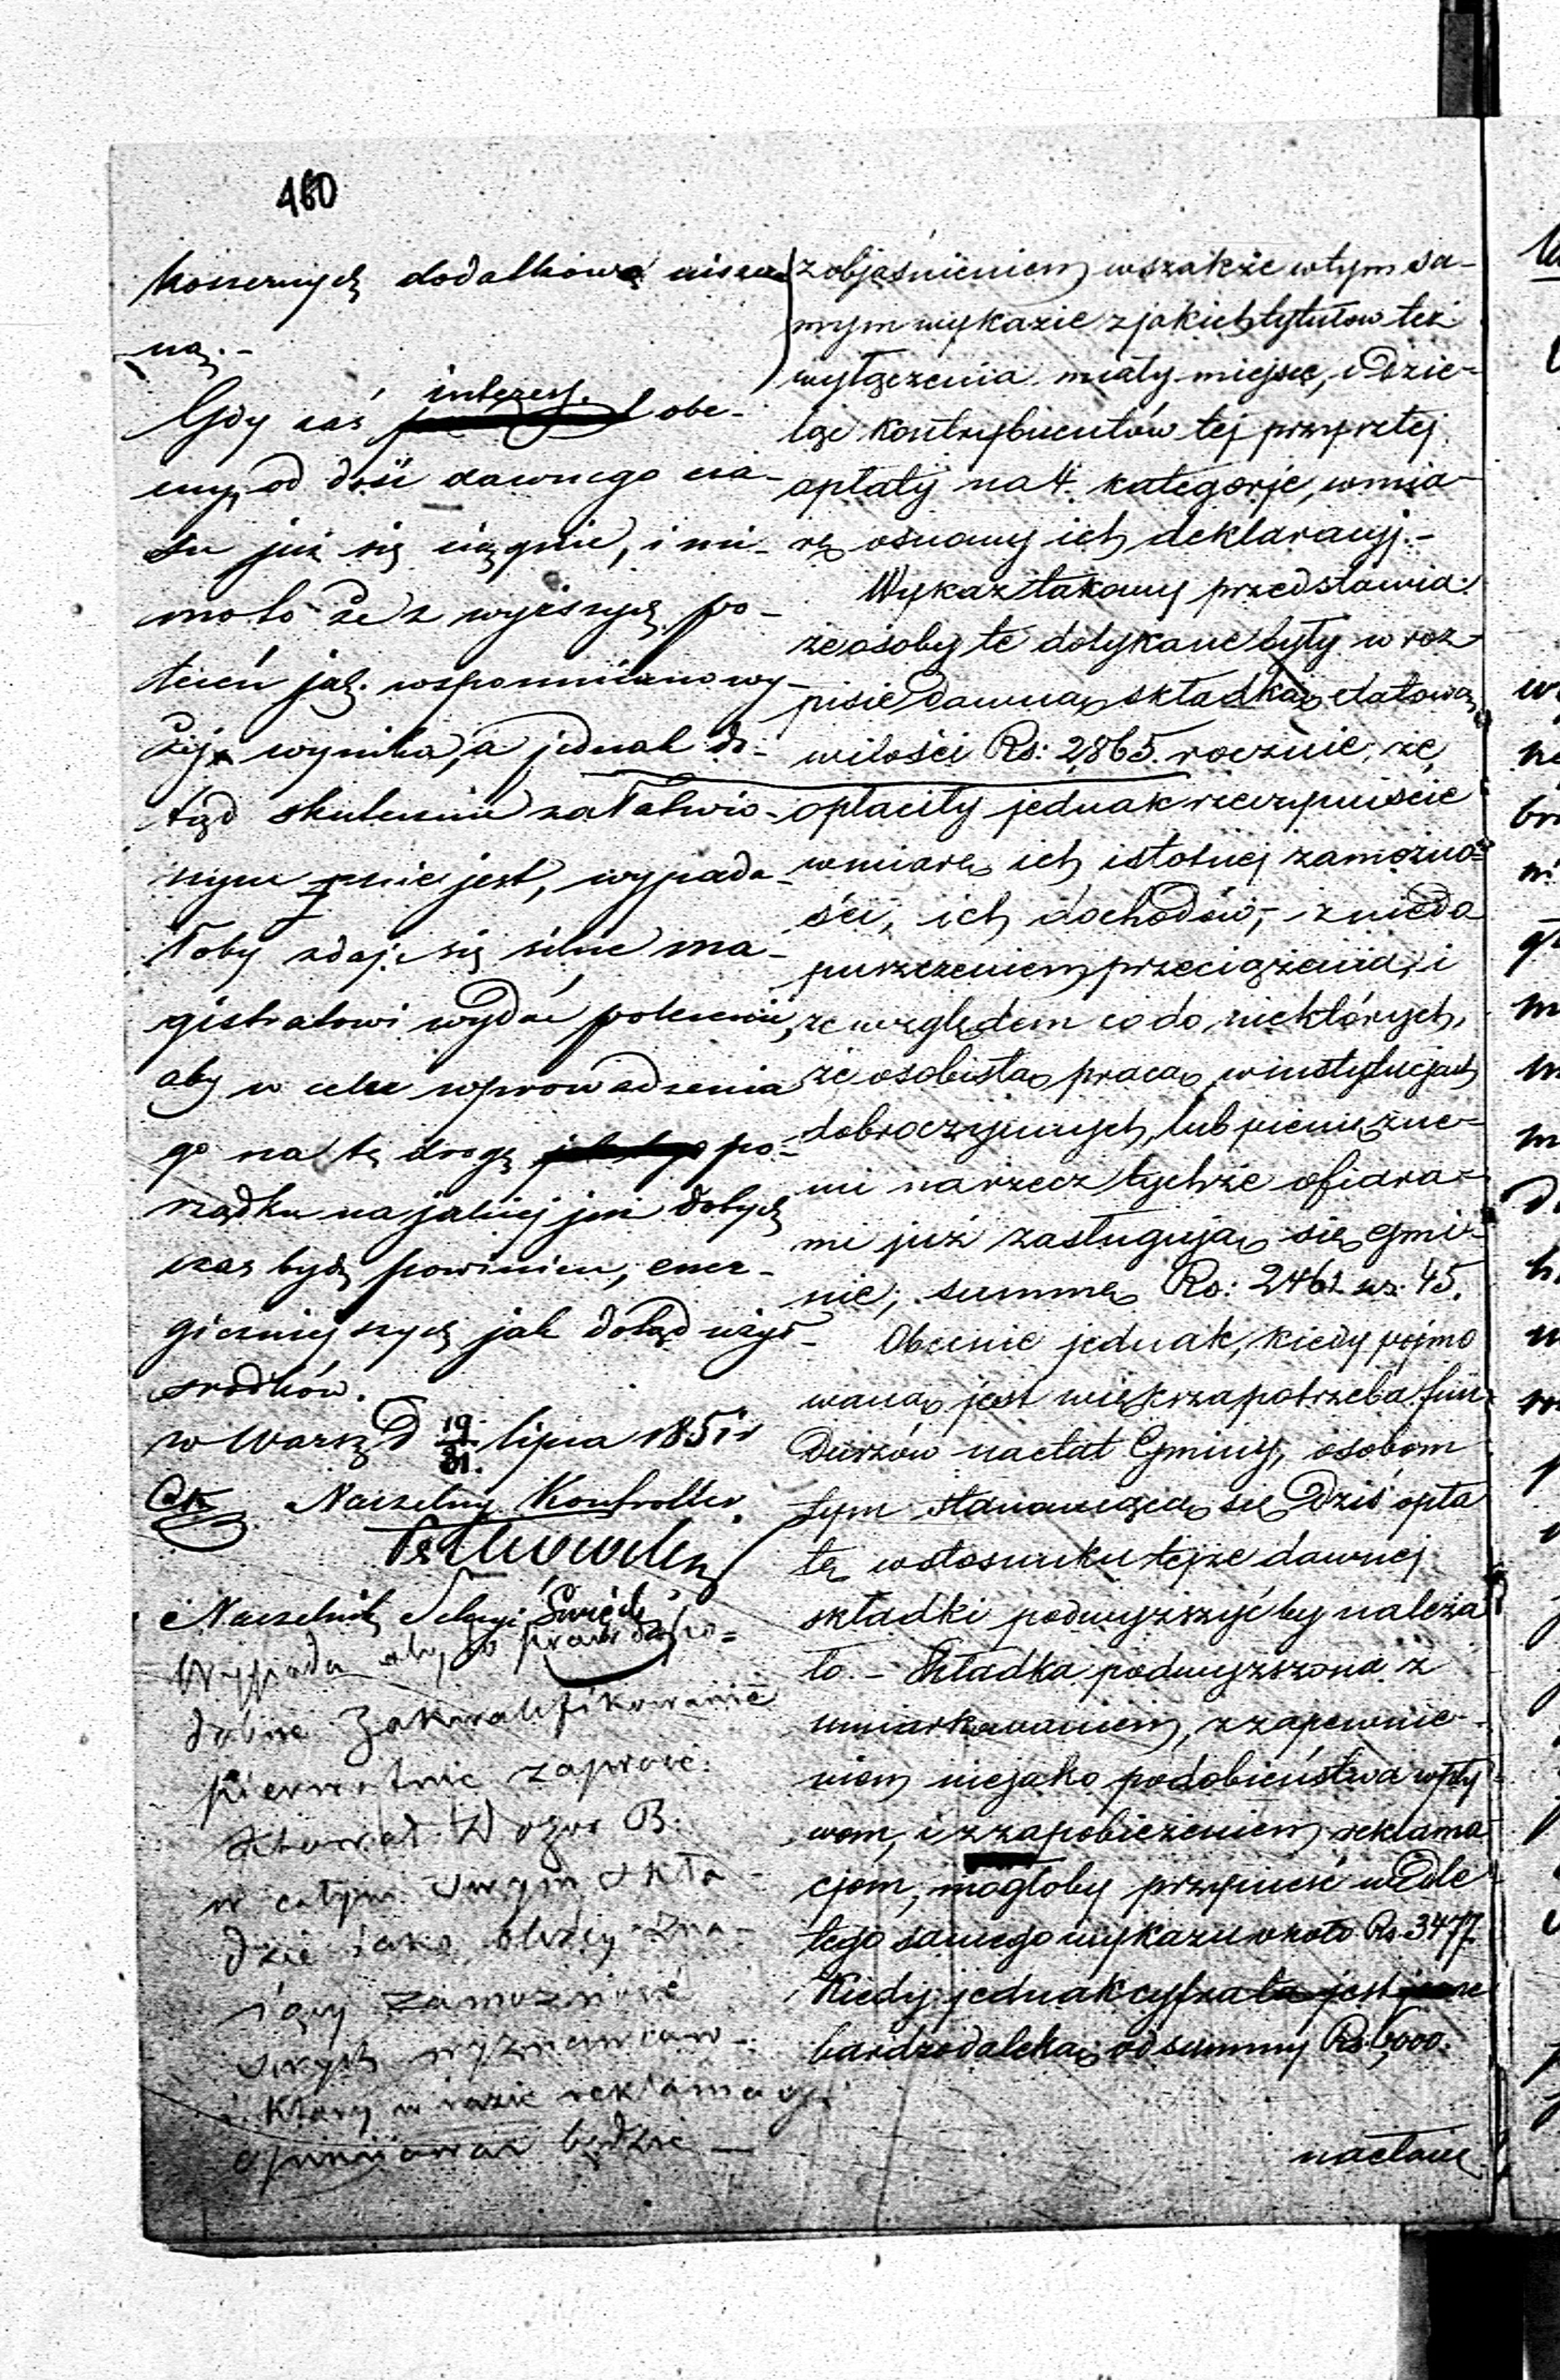 460
dodatkową
ną.-
interess.
Gdy zaś obe-
cny, od dość dawnego cza-
su już się ciągnie, i mi-
mo to że z wyższych po-
leceń jak wspomniano wy-
żej wynika, a jednak do-
tąd skutecznie załatwio-
nym nie jest, wypada-
łoby zdaje się silnie ma-
gistratowi wydać polecenie,
aby w celu wprowadzenia
go na tę drogę po-
rządku na jakiej już dotych
czas być powinien, ener-
giczniejszych jak dotąd użył
srodków.
w Warsz. D 19/31. lipca 1851 r
Naczelny Kontroller
Naczelnik Sekcyi
Wypada aby
dobne Zakwalifikowanie
pierwotnie
Dozor B.
w całym swym skła-
dzie jako bliżey zna-
iący zamożność
swych wyznawców-
i który w razie reklamacyi
opiniować będzie —
z objaśnieniem wszakże w tym sa-
mym wykazie z jakich tytułów też
wyłączenia miały miejsce, i dzie-
ląc kontrybuentów tej przyszłej
opłaty na 4. kategorje, w mia-
rę osnowy ich deklaracyj.-
Wykaz takowy przedstawia:
że osoby te dotykane były w roz-
pisie dawną składką etatową
w ilości Rs: 2,865. rocznie, że
opłaciły jednak rzeczywiście
w miarę ich istotnej zamożno-
ści, ich dochodów, - z niedo
puszczeniem przeciążenia, i
ze względem co do niektórych,
że osobistą pracą w instytucjach
dobroczynnych, lub pieniężne-
mi na rzecz tychże ofiara-
mi już zasługują się gmi-
nie; summę Rs: 2461 kz: 45.
Obecnie jednak, kiedy pojmo
waną jest większa potrzeba fun-
duszów na etat Gminy, osobom
tym stanowiącą się dziś opła
tę w stosunku tejże dawnej
składki podwyższyć by należa
ło. - Składka podwyższona z
umiarkowaniem, z zapewnie-
niem niejako podobieństwa wpły
wom, i z zapobieżeniem reklama
cjom, mogłoby przynieść wedle
tego samego wykazu około Rs. 3477.
Kiedy jednak cyfra ta jest
bardzo daleką od summy Rs 6,000.